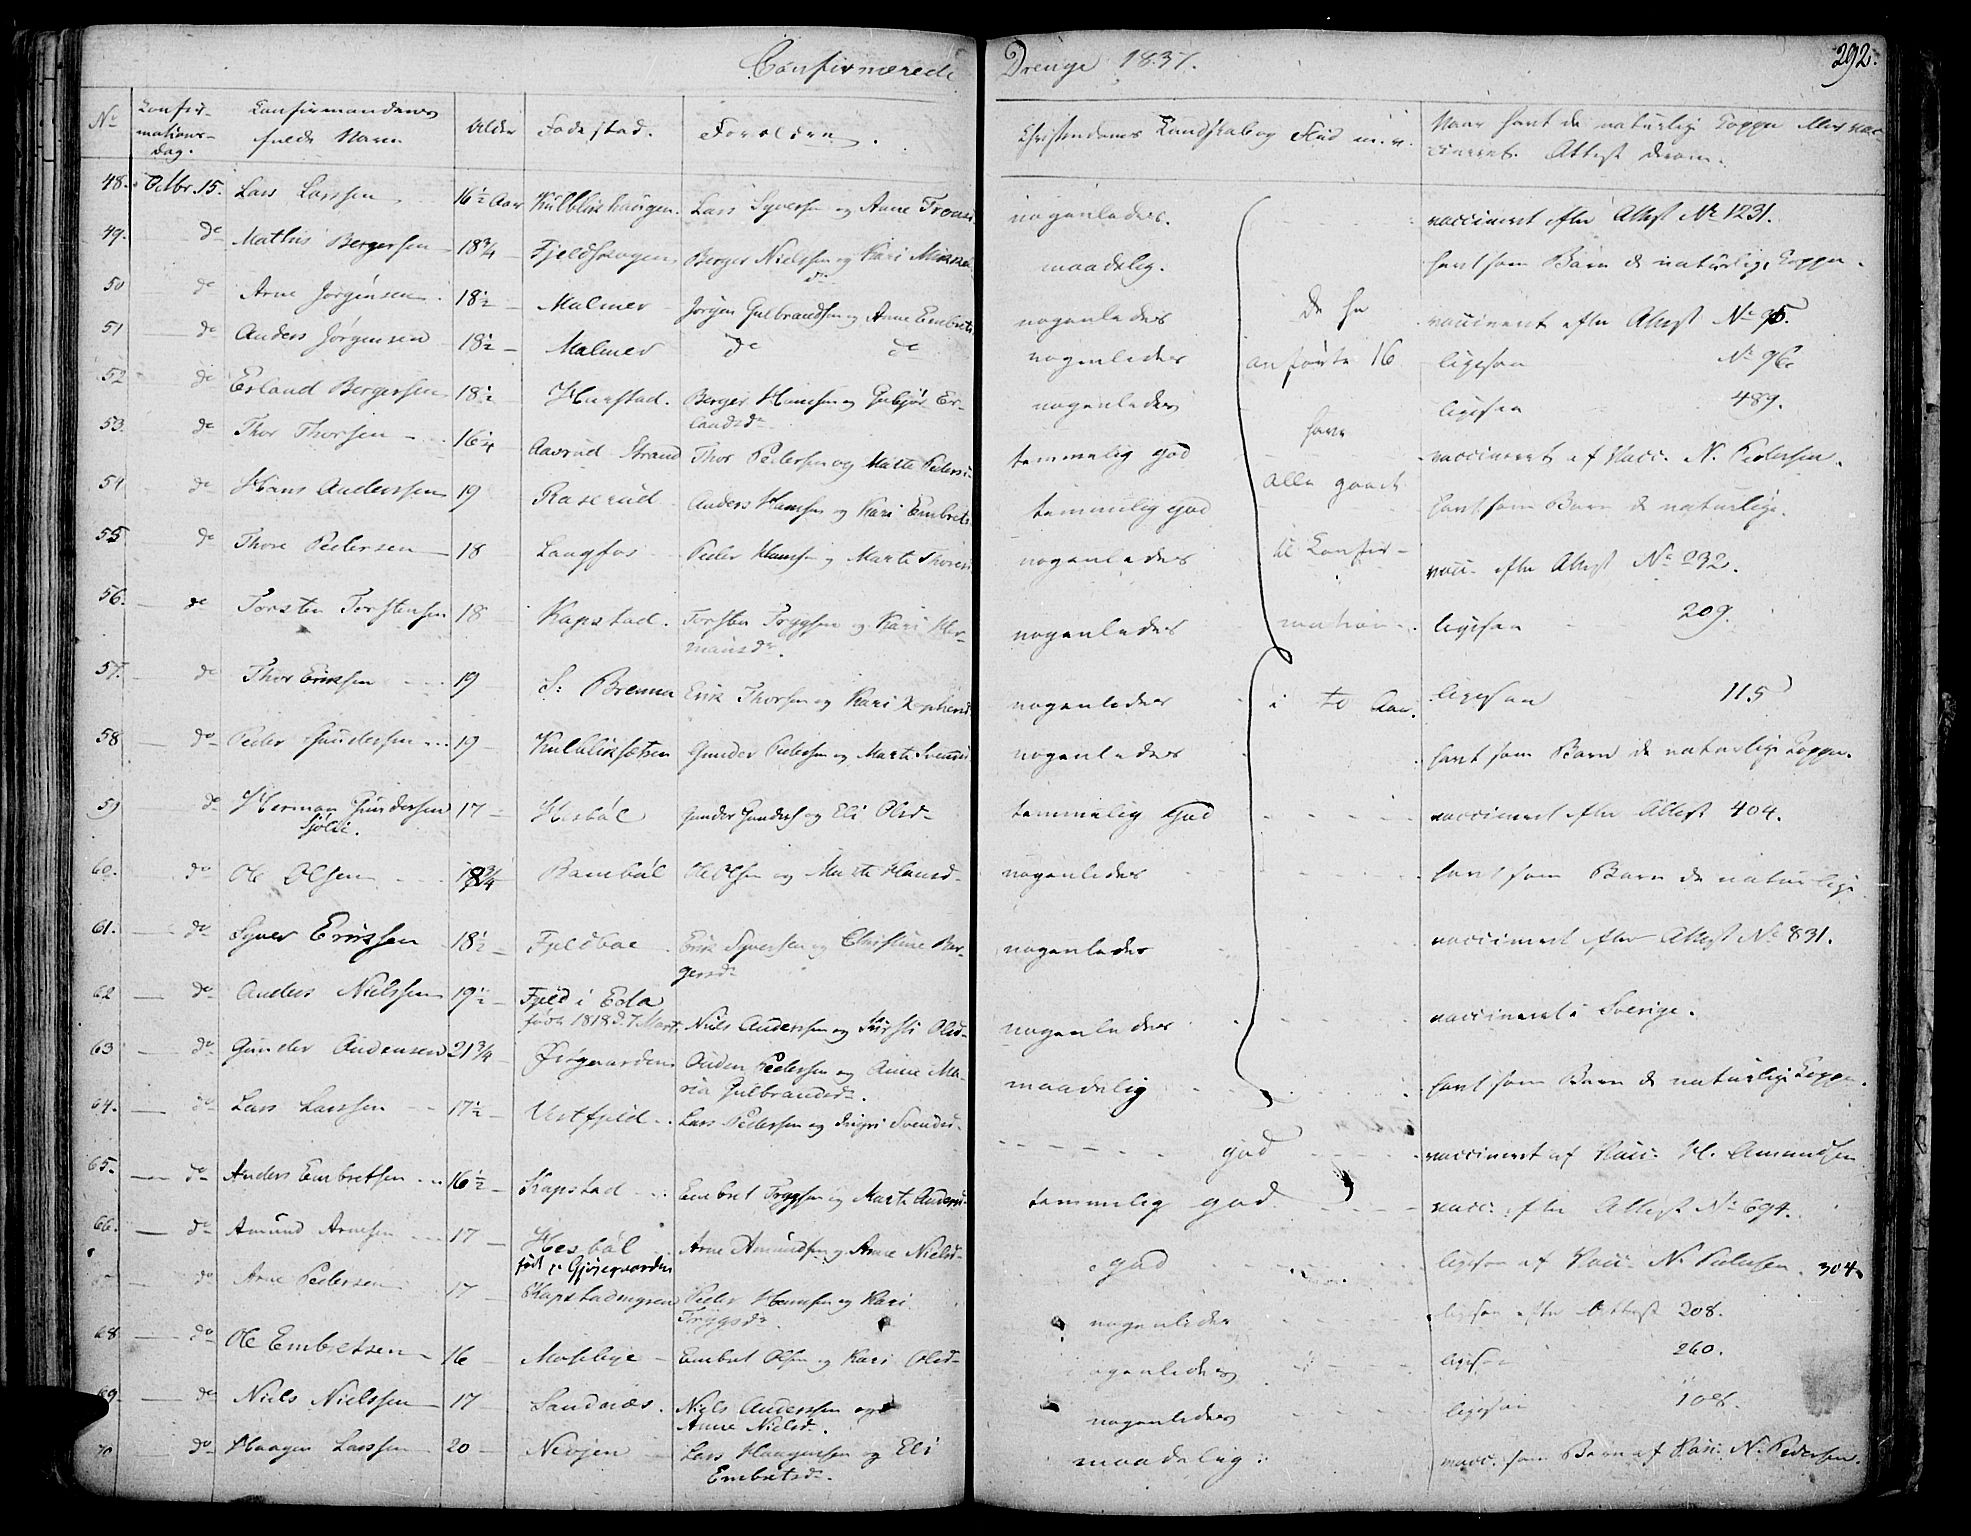 Confirmerede Drenge 1837. 292.
No Confirmations-dag. Confirmandens fulde Navn Alder Fødested. Forældre. Christendoms Kundskab og Flid m. v. Naar havt de naturlige Kopper eller vaccineret. Attest derom.
48. Octbr. 15. Lars Larssen 16½ Aar Kulblikhaugen. Lars Syversen og Anne nogenledes. vaccineret efter Attest No 1231.
49. do Mathis Bergersen 18¾ Berger Nielssen og Kari maadelig. havt som Barn de naturlige Kopper.
50 do Arne Jørgensen 18½ Malmer Jørgen Gulbrandsen og Anne Embretsdr nogenledes De her vaccineret efter Attest No 95.
51 do Anders Jørgensen 18½ Malmer do do nogenledes anførte 16 ligesaa No 96
52 do Erland Bergersen 18½ Harstad. Berger Hansen og Gubjør Er-
landsdr nogenledes have ligesaa 489.
53. do Thor Thorsen 16¼ Aasrud Strand Thor Pedersen og Marte Pedersd. temmelig god vaccineret af Vacc. N. Pedersen.
54 do Hans Anderssen 19 Raserud Anders Hansen og Kari Embretsd. temmelig god alle gaaet havt som Barn de naturlige.
55 do Thore Pedersen 18 Langfos Peder Hansen og Marte Thoresd nogenledes til Confir- vacc. efter Attest No 232.
56. do Torsten Torstensen 18 Kapstad. Torsten Tryggsen og Kari Her-
mansdr. nogenledes mation ligesaa 209.
57. do Thor Eriksen 19 S: Brenna Erik Thorsen og Kari nogenledes i to Aar. ligesaa 115
58 do Peder Gundersen 19 Kulbliksetren Gunder Pedersen og Marte Svensd nogenledes havt som Barn de naturlige Kopper.
59 do Herman Gundersen
Sjølie. 17 Hesbøl Gunder Gunders og Eli Olsd. temmelig god vaccineret efter Attest 404.
60. do Ole Olsen 18¾ Bambøl Ole Olsen og Marte Hansd. nogenledes havt som Barn de naturlige
61. do Syver Erikssen 18½ Fjeldboe Erik Syverssen og Christine Ber-
gersdr nogenledes vaccineret efter Attest No 831.
62 do Anders Nielssen 19½ Fjeld i Eda
født 1818 d. 7 Marts Niels Anderssen og Kirsti Olsd. nogenledes vaccineret i Sverige.
63 do Gunder Audensen 21¾ Øiegaarden Auden Pedersen og Anne Ma-
ria Gulbrandsdr. maadelig havt som Barn de naturlige Kopper.
64. do Lars Larssen 17½ Vestfjeld Lars Pedersen og Ingri Svendsd. god vaccineret af Vacc. H. Amundsen
65. do Anders Embretsen 16½ Kapstad Embret Tryggsen og Marte Andersd. temmelig god vacc. efter Attest No 694.
66. do Amund Arnesen 17 Hesbøl
født i Gjøsegaarden Arne Amundsen og Anne Nielsd. god ligesaa af Vacc. N. Pedersen. 304.
do Arne Pedersen 17 Kapstadmyren Peder Hansen og Kari
Tryggsdr. nogenledes ligesaa efter Attest 208.
68. do Ole Embretsen 16 Moselye Embret Olsen og Kari Olsd. nogenledes ligesaa 260.
69. do Niels Nielssen 17 Sandnæs. Niels Anderssen og
Anne Nielsdr. nogenledes ligesaa 108.
70 do Haagen Larssen 20 Nevjen Lars Haagensen og Eli
Embretsdr. maadelig. vacc. som Barn af Vacc. N. Pedersen.